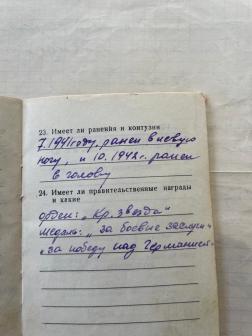 23. Имеет ли ранения и контузии
7.1941 году, ранен в левую
ногу, и 10.1942 г. ранен
в голову
24. Имеет ли правительственные награды
и какие
орден: „Кр. звезда"
медаль: „За боевые заслуги"
„за победу над Германией"